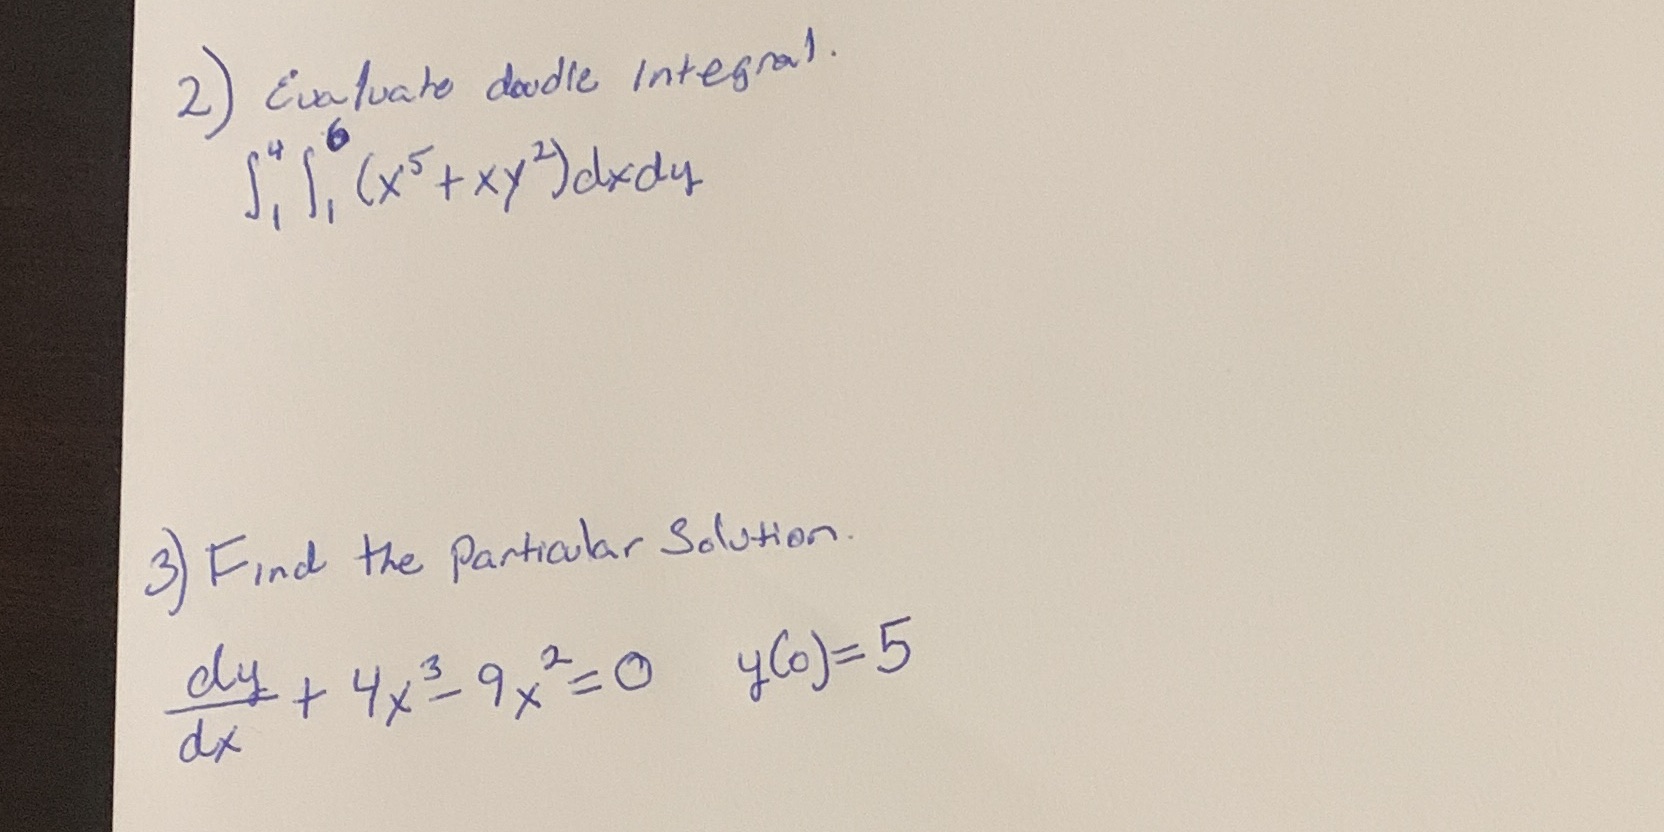 2) Evaluate double Integral.
∫₁⁴ ∫₁⁶ (x⁵ + xy²)dxdy
3) Find the Particular Solution.
dy/dx + 4x³ - 9x² = 0 y(0) = 5